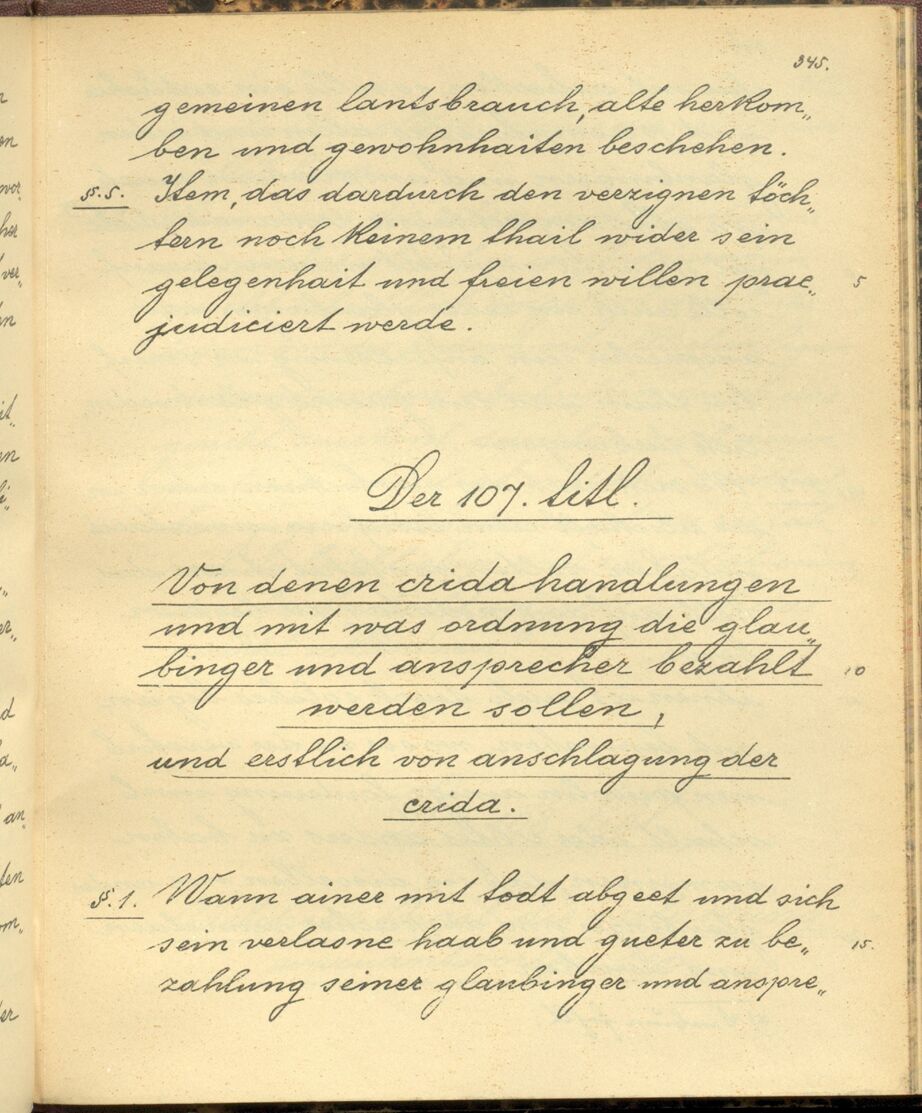 345.
gemeinen lantsbrauch, alte herkom„
ben und gewohnhaiten beschehen.
§. 5. Item, das dardurch den verzignen töch„
tern noch keinem thail wider sein
gelegenhait und freien willen prae„ 5
judiciert werde.
Der 107. titl.
Von denen crida handlungen
und mit was ordnung die glau„
binger und ansprecher bezahlt 10
werden sollen,
und erstlich von anschlagung der
crida.
§. 1. Wann ainer mit todt abgeet und sich
sein verlasne haab und gueter zu be„ 15.
zahlung seiner glaubinger und anspre„